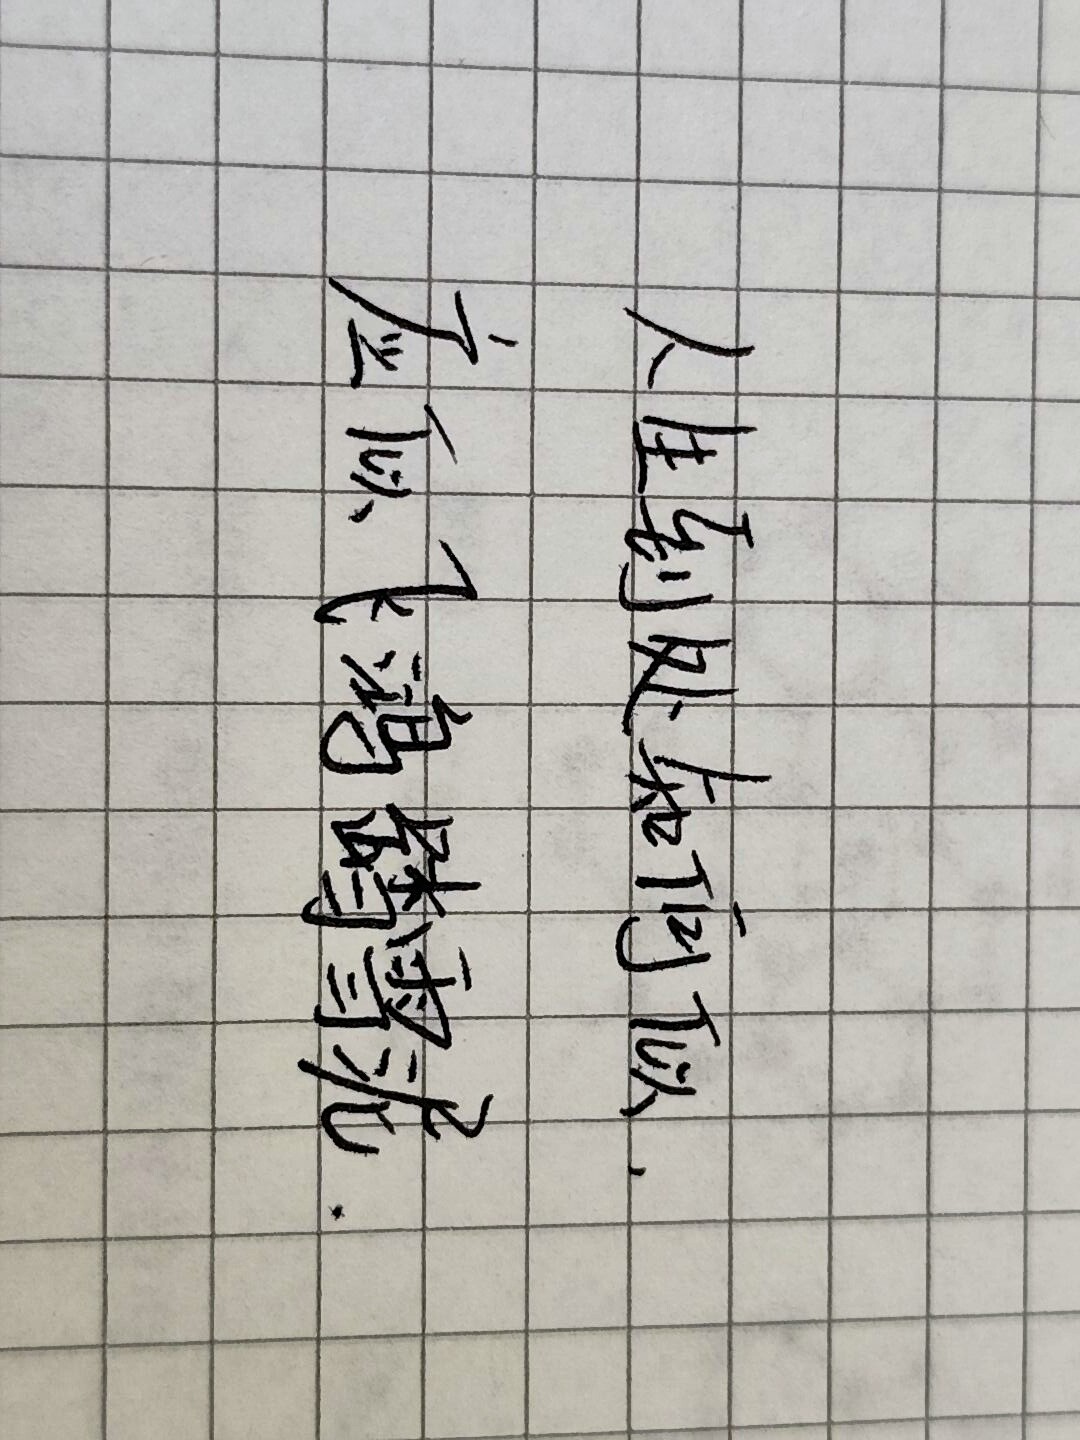 人生到处知何似,
应似飞鸿踏雪泥.